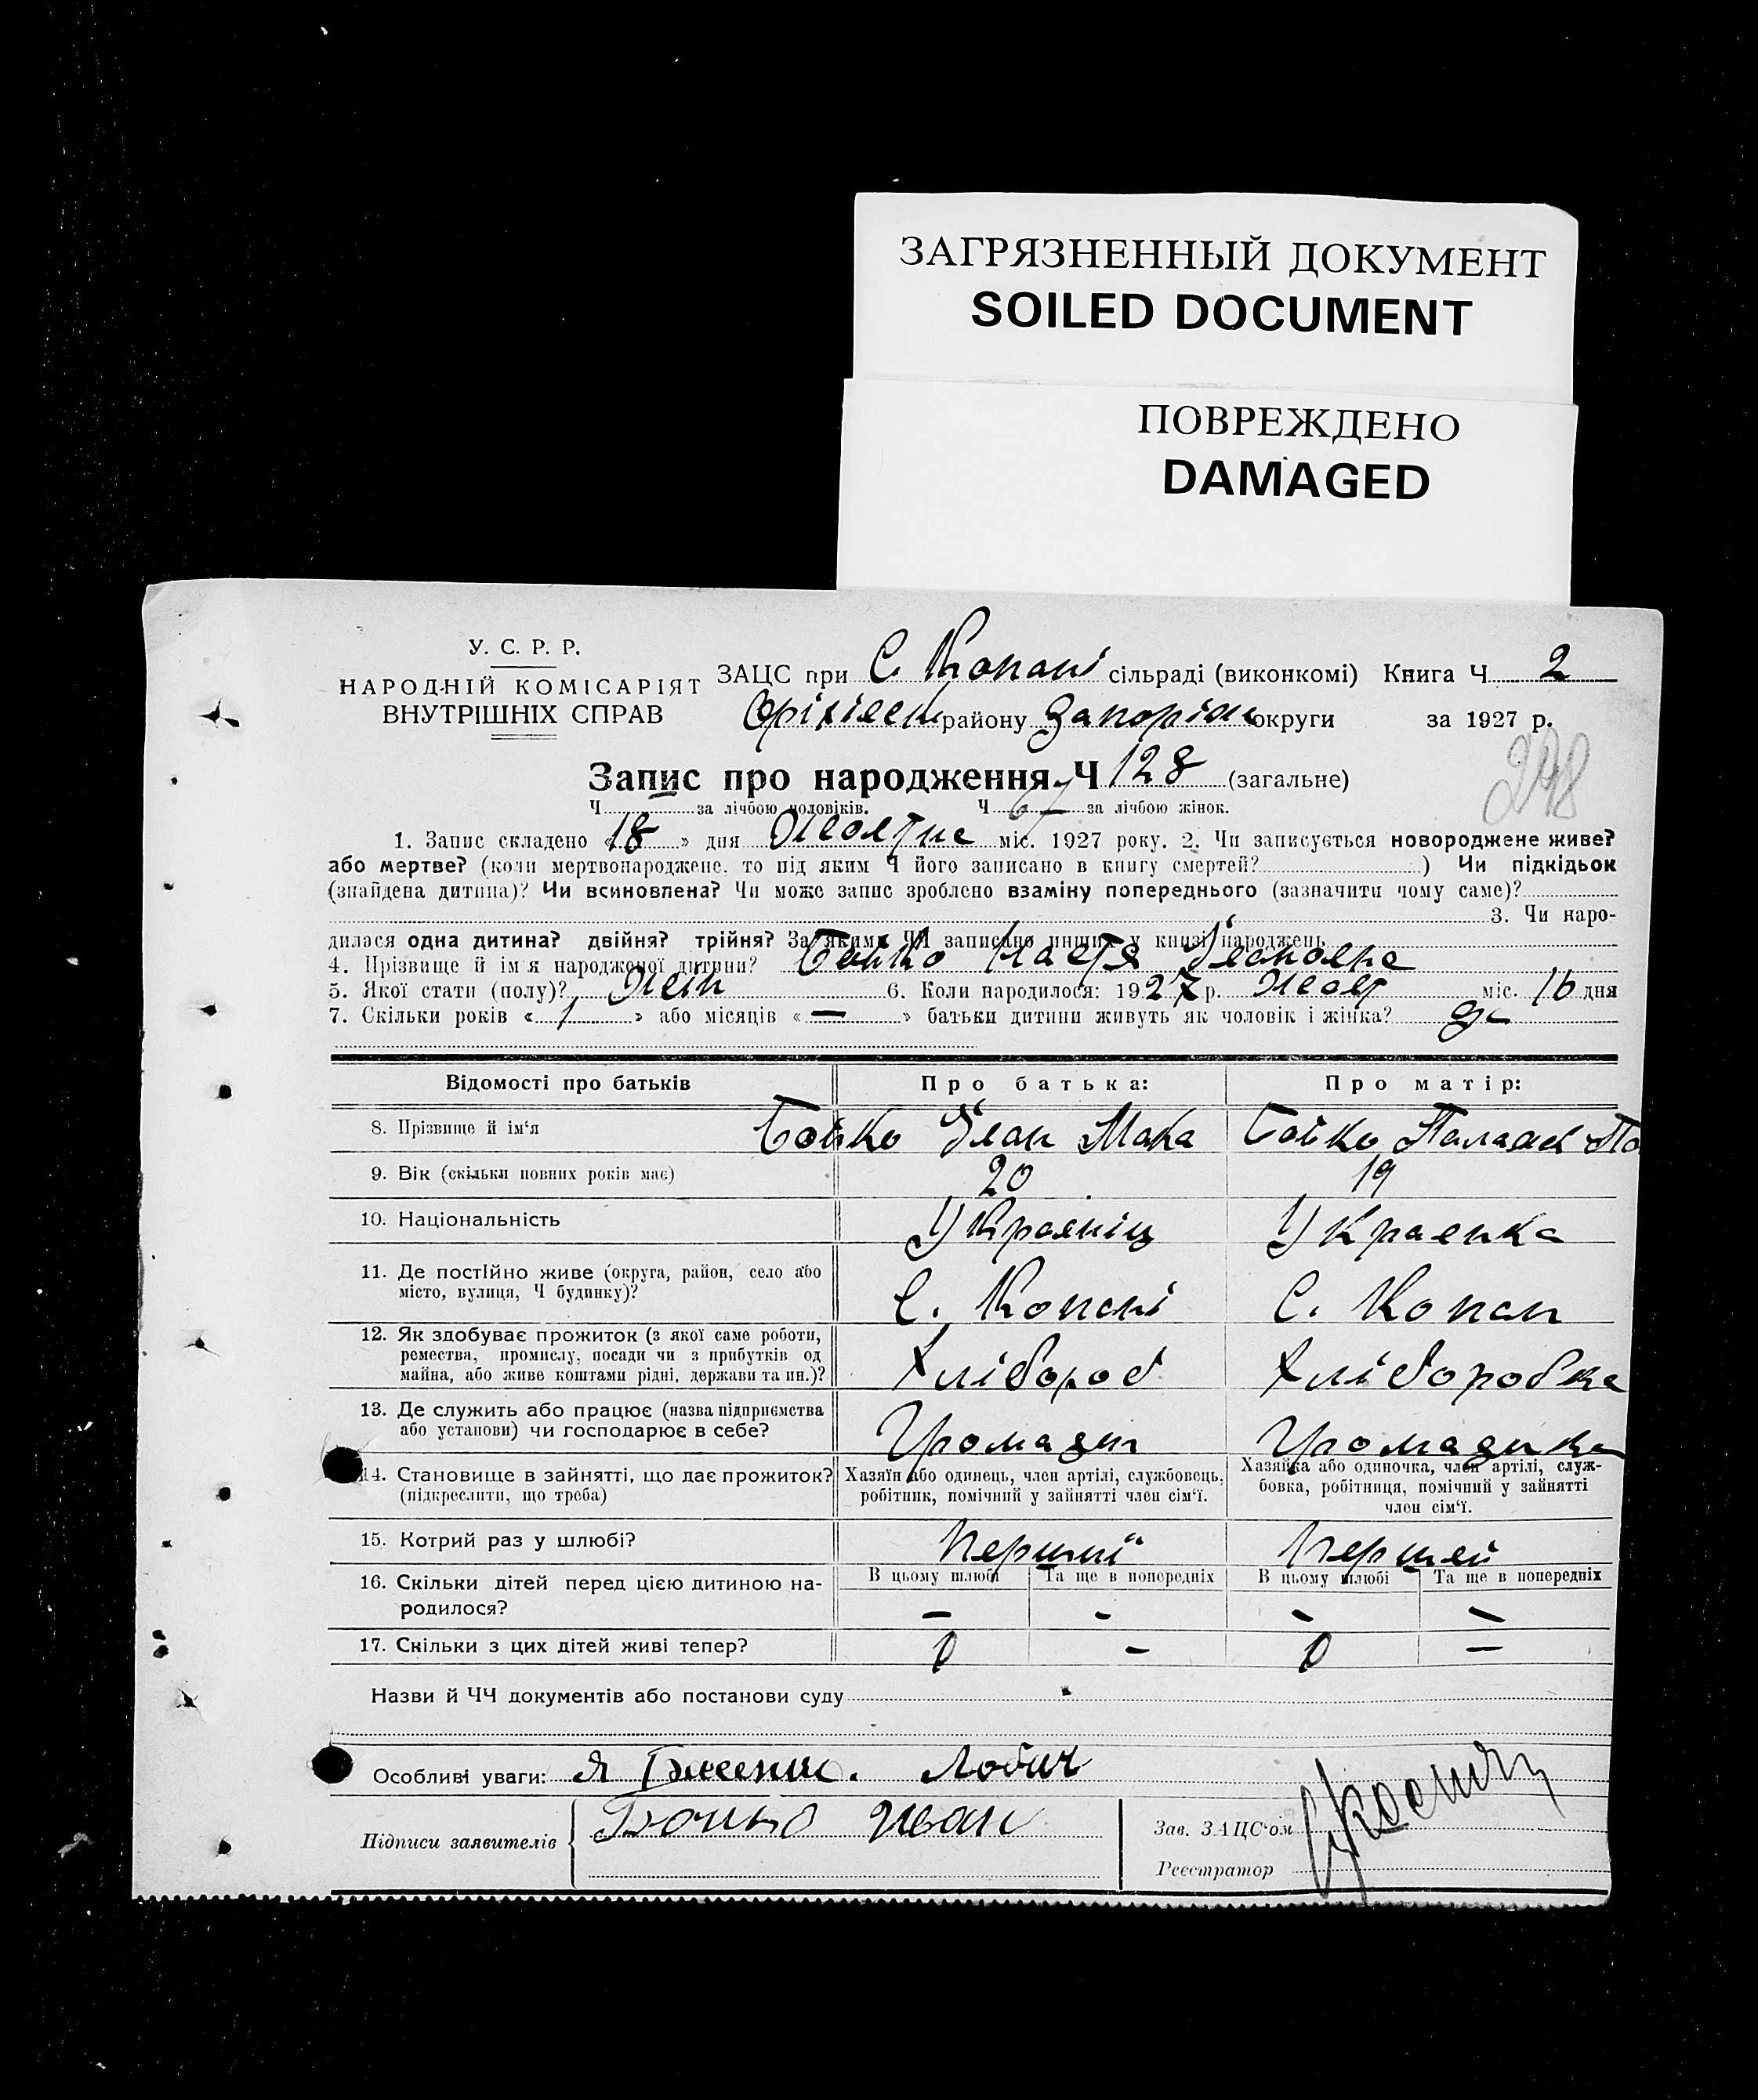 ЗАГРЯЗНЕННЫЙ ДОКУМЕНТ
SOILED DOCUMENT
ПОВРЕЖДЕНО
DAMAGED
У. С. Р. Р.
НАРОДНІЙ КОМІСАРІЯТ
ВНУТРІШНІХ СПРАВ
ЗАЦС при С. Копані сільраді (виконкомі) Книга Ч 2
району округи за 1927 р.
248
Запис про народження Ч 128 (загальне)
Ч за лічбою чоловіків. Ч 67 за лічбою жінок.
1. Запис складено « 18 » дня міс. 1927 року. 2. Чи записується новороджене живе?
або мертве? (коли мертвонароджене, то під яким Ч його записано в книгу смертей? ) Чи підкідьок
(знайдена дитина)? Чи всиновлена? Чи може запис зроблено взаміну попереднього (зазначити чому саме)?
3. Чи наро-
дилася одна дитина? двійня? трійня? За якими ЧЧ записано инших у книзі народжень
4. Прізвище й ім'я народженої дитини? Бойко Настя Івановна
5. Якої стати (полу)? Жен 6. Коли народилося: 1927 р. Жовт міс. 16 дня
7. Скільки років « 1 » або місяців « — » батьки дитини живуть як чоловік і жінка? да
Відомості про батьків Про батька: Про матір:
8. Прізвище й ім'я Бойко Іван Мака Бойко Палажа По
9. Вік (скільки повних років має) 20 19
10. Національність Украяніц Украенка
11. Де постійно живе (округа, район, село або
місто, вулиця, Ч будинку)? С. Копані С. Копан
12. Як здобуває прожиток (з якої саме роботи,
ремества, промислу, посади чи з прибутків од
майна, або живе коштами рідні, держави та ин.)? Хлібороб Хліборобка
13. Де служить або працює (назва підприємства
або установи) чи господарює в себе? Громадян Громадянка
14. Становище в зайнятті, що дає прожиток?
(підкреслити, що треба)
Хазяїн або одинець, член артілі, службовець,
робітник, помічний у зайнятті член сім'ї.
Хазяйка або одиночка, член артілі, служ-
бовка, робітниця, помічний у зайнятті
член сім'ї.
15. Котрий раз у шлюбі? Перший Першей
В цьому шлюбі Та ще в попередніх В цьому шлюбі Та ще в попередніх
16. Скільки дітей перед цією дитиною на-
родилося? — - - -
17. Скільки з цих дітей живі тепер? 0 - 0 —
Назви й ЧЧ документів або постанови суду
Особливі уваги: Я
Підписи заявителів Бойко Иван
Зав. ЗАЦС'ом
Реєстратор